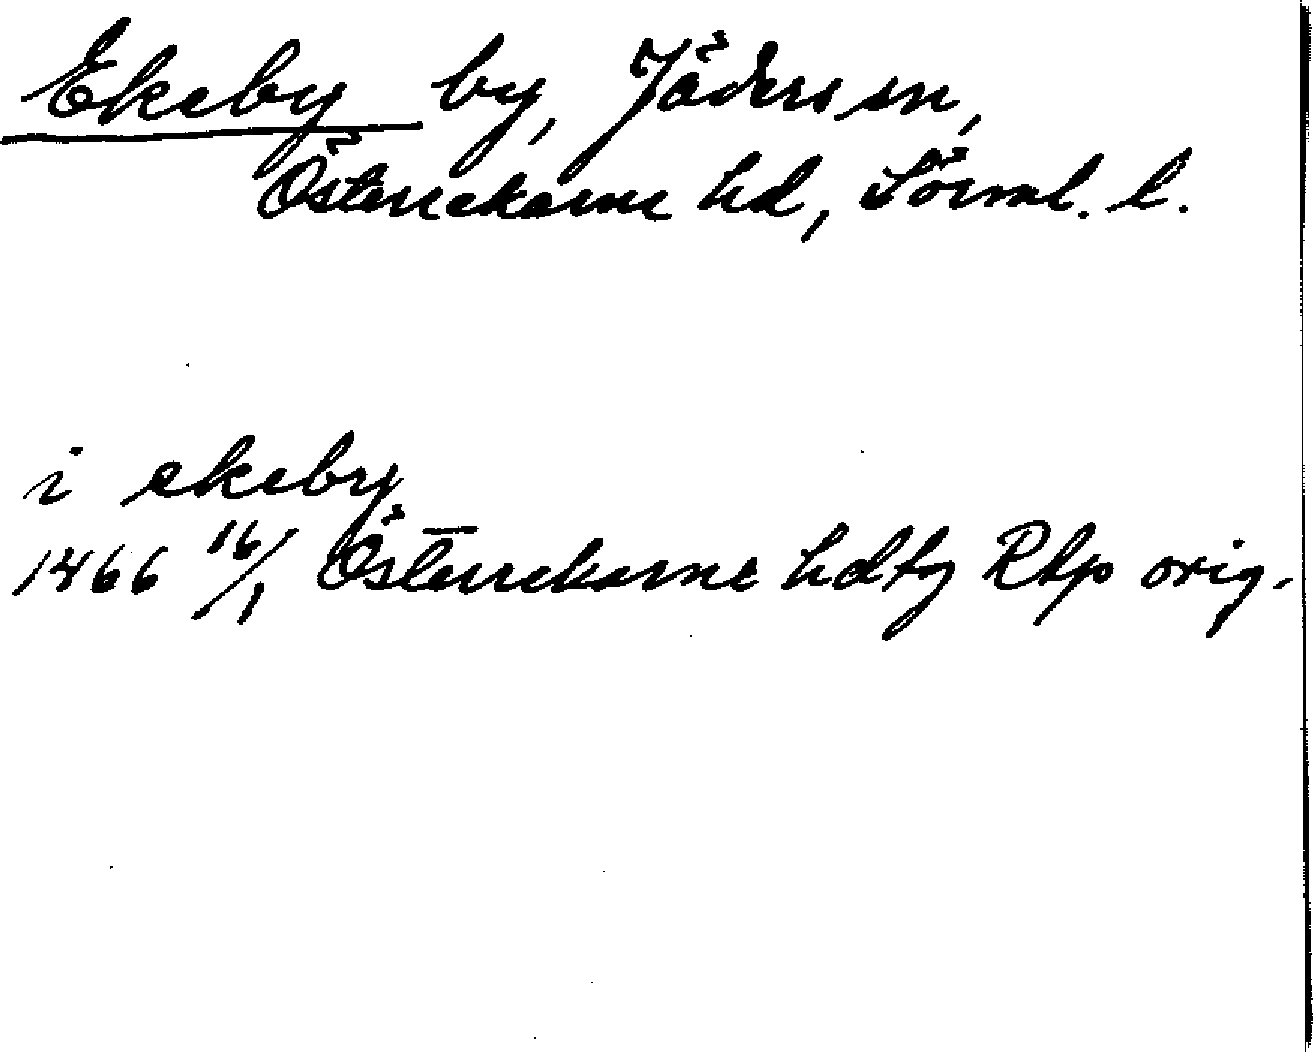 Ekeby by, Jäders sn,
Österrekarne hd, Sörml. l.
i ekeby
1466 16/1 Österrekarne hdtg Rkp orig.